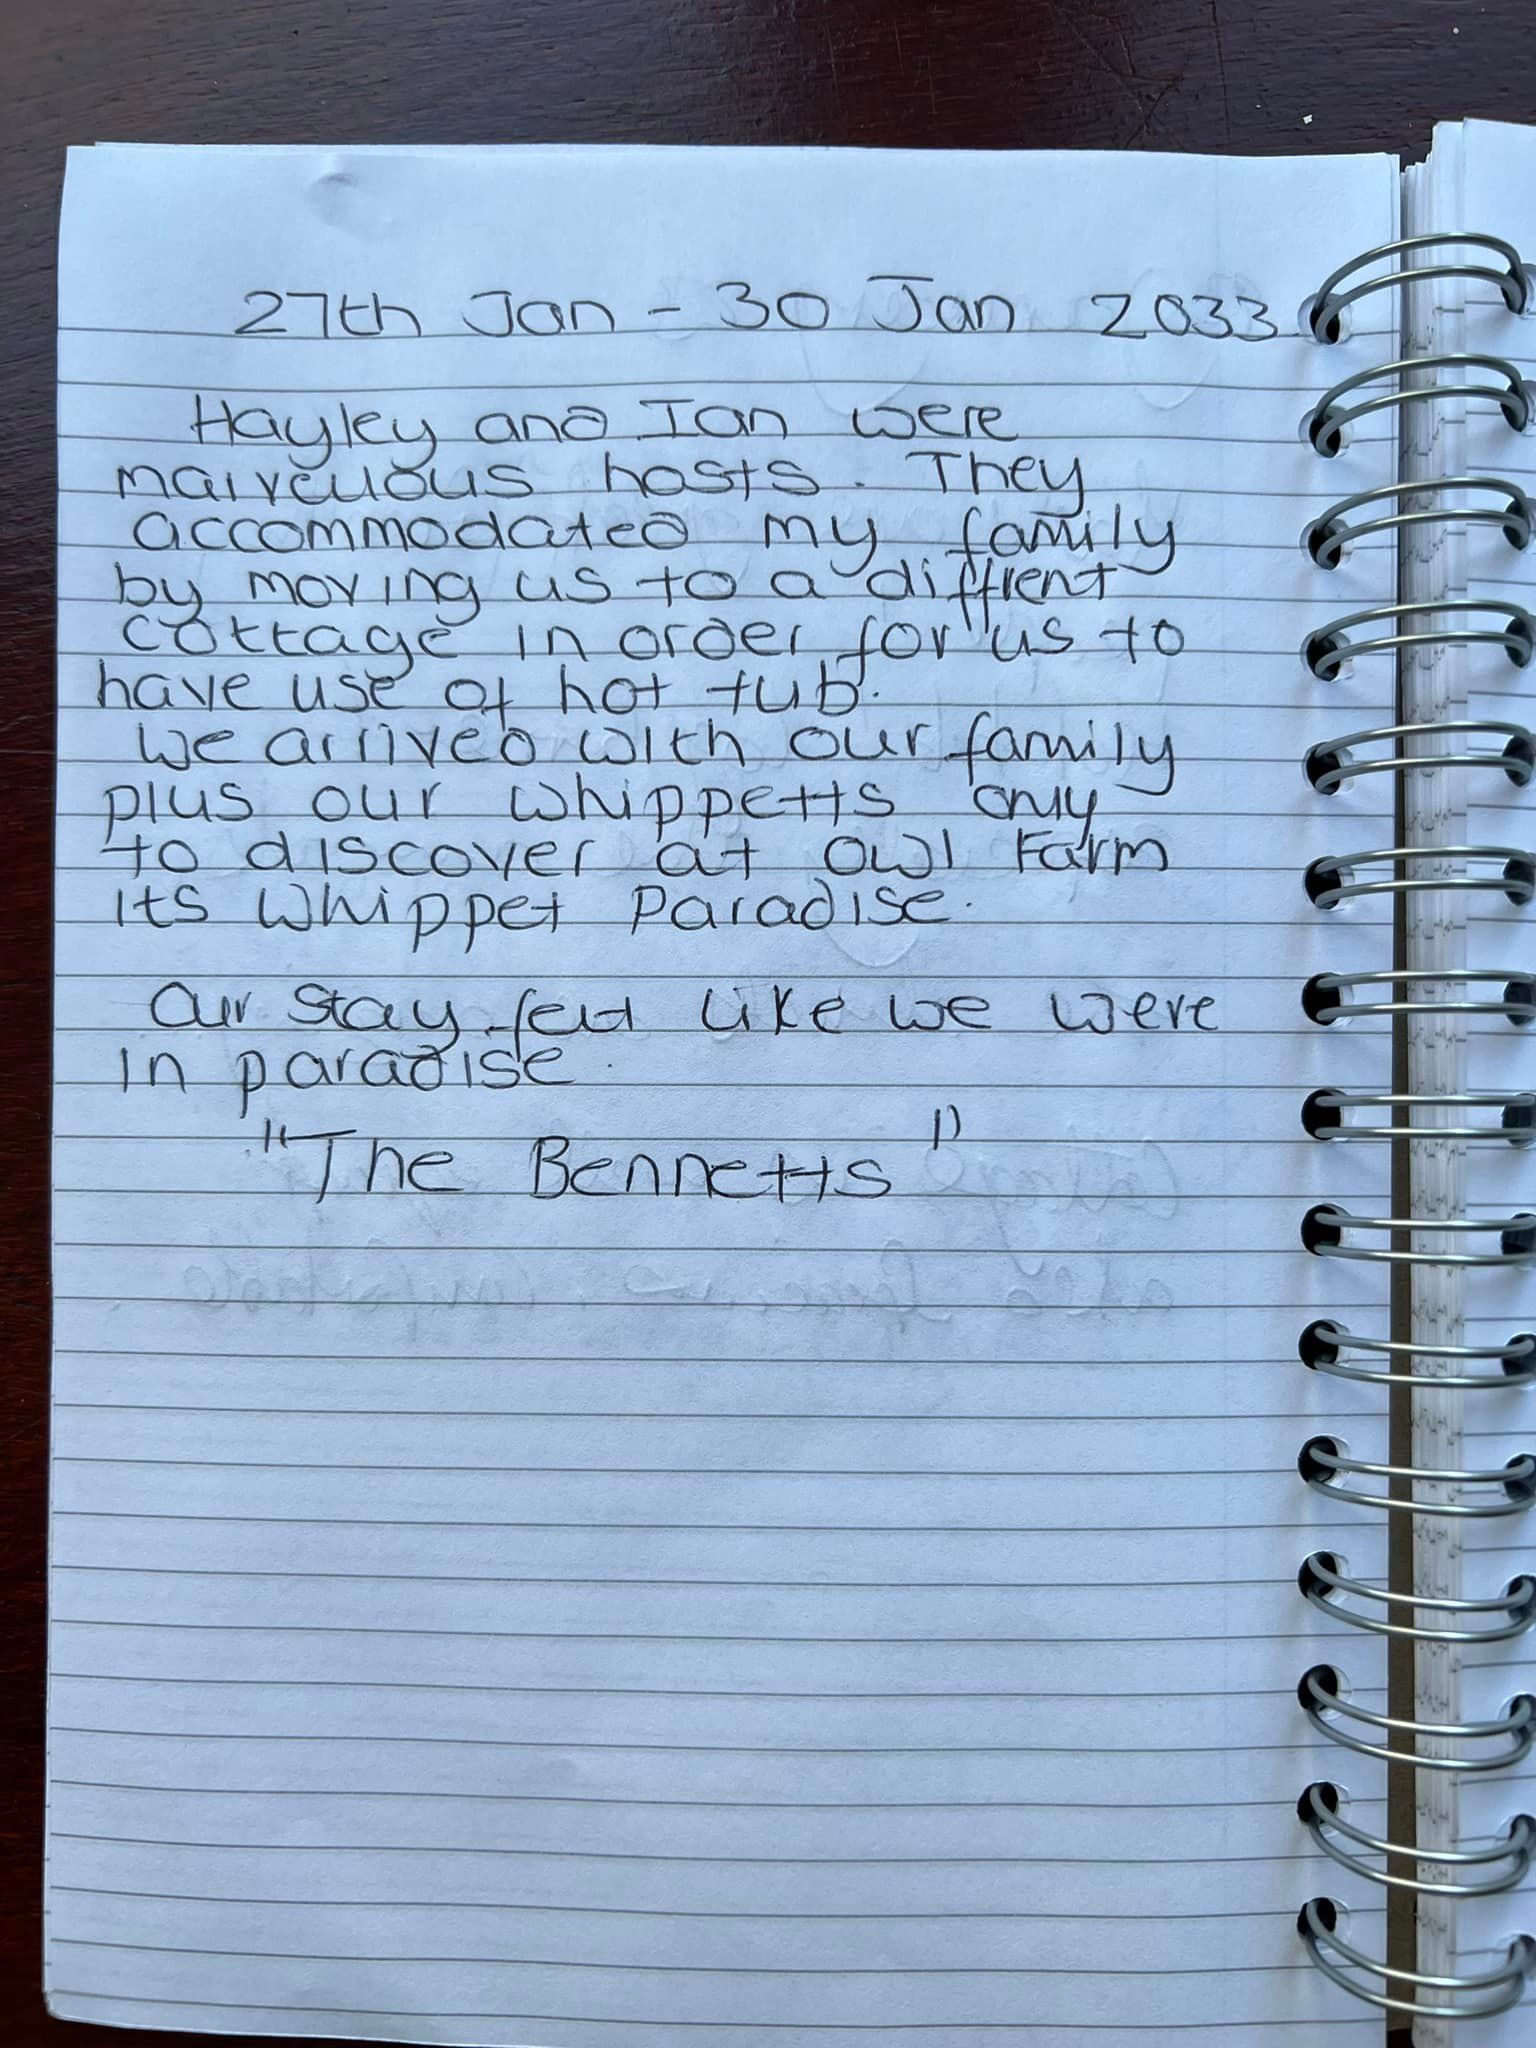 27th Jan - 30 Jan 2033
Hayley and Ian were
marvellous hosts. They
accommodated my family
by moving us to a diffrent
cottage in order for us to
have use of hot tub.
We arrived with our family
plus our whippetts only
to discover at Owl Farm
its Whippet Paradise.
Our stay felt like we were
in paradise.
"The Bennetts"